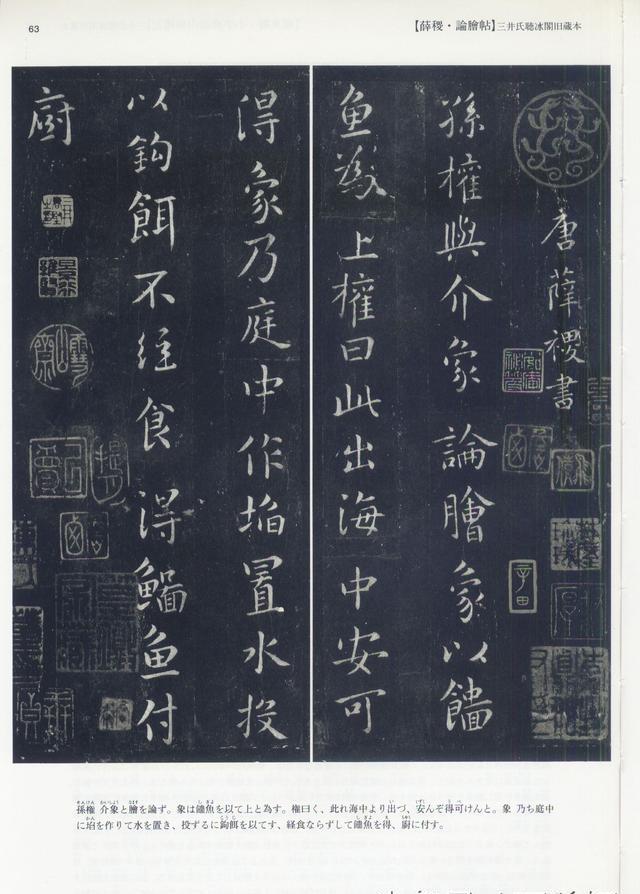 63
【薛稷・論膾帖】三井氏聴冰閣旧蔵本
唐薛稷書
孫權與介象論膾象以鯔
魚為上權曰此出海中安可
得象乃庭中作埳置水投
以鈎餌不経食得鯔魚付
廚
孫権 介象と膾を論ず。象は鯔魚を以て上と為す。権曰く、此れ海中より出づ、安んぞ得可けんと。象 乃ち庭中
に埳を作りて水を置き、投ずるに鈎餌を以てす、経食ならずして鯔魚を得、廚に付す。